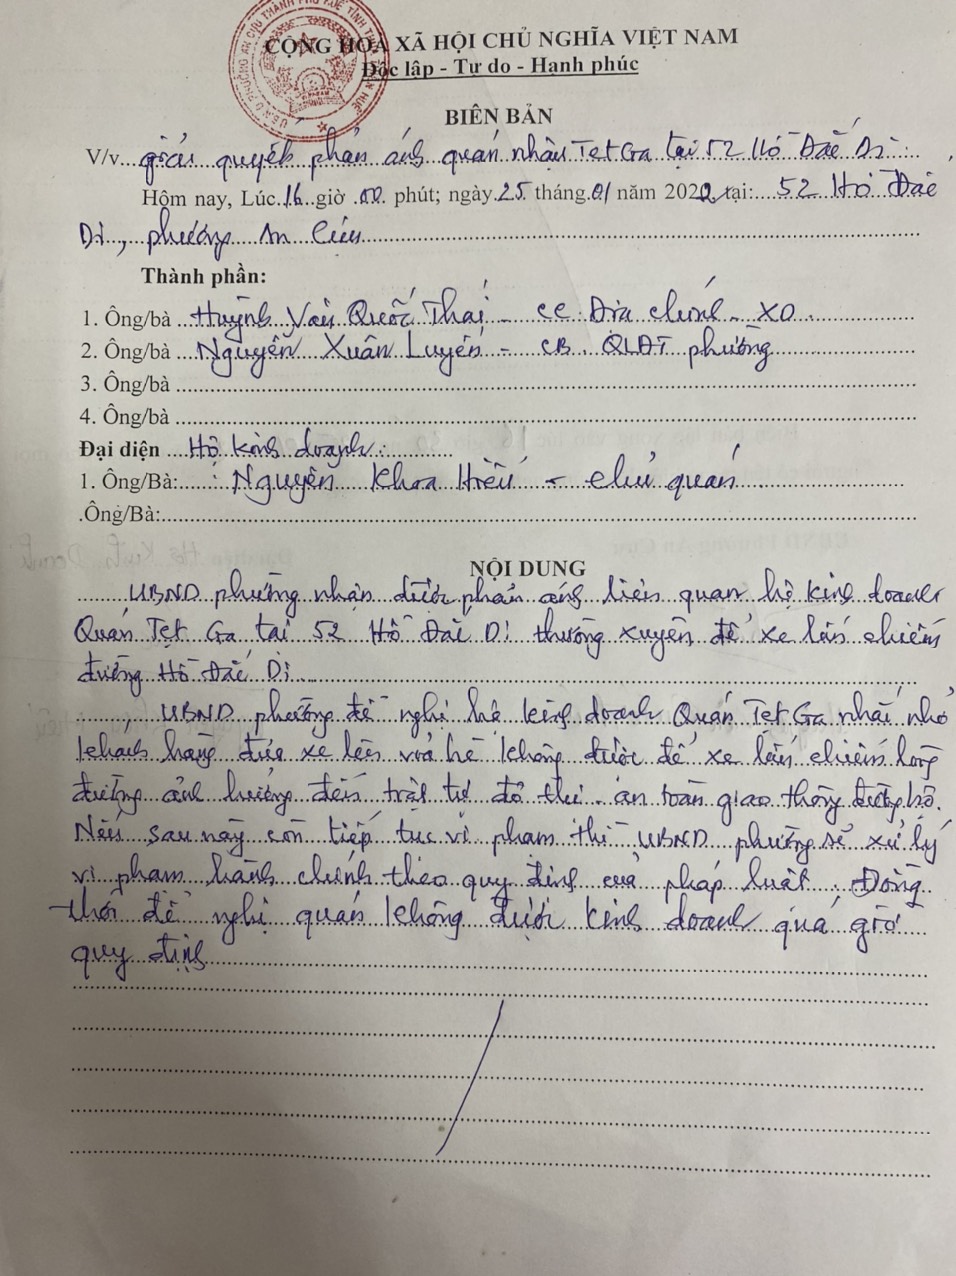 U.B.N.D PHƯỜNG AN CỰU THÀNH PHỐ HUẾ TỈNH
CỘNG HOÀ XÃ HỘI CHỦ NGHĨA VIỆT NAM
Độc lập - Tự do - Hạnh phúc
BIÊN BẢN
V/v giải quyết phản ánh quán nhậu Tẹt Ga tại 52 Hồ Đắc Di
Hôm nay, Lúc 16 giờ 00 phút; ngày 25 tháng 01 năm 2022, tại: 52 Hồ Đắc
Di, phường An Cựu
Thành phần:
1. Ông/bà Huỳnh Văn Quốc Thái - CC Địa chính - XD
2. Ông/bà Nguyễn Xuân Luyến - CB QLĐT phường
3. Ông/bà
4. Ông/bà
Đại diện Hộ kinh doanh:
1. Ông/Bà: Nguyễn Khoa Hiếu - chủ quán
.Ông/Bà:
NỘI DUNG
UBND phường nhận được phản ánh liên quan hộ kinh doanh
Quán Tẹt Ga tại 52 Hồ Đắc Di thường xuyên để xe lấn chiếm
đường Hồ Đắc Di.
UBND phường đề nghị hộ kinh doanh Quán Tẹt Ga nhắc nhở
khách hàng đưa xe lên vỉa hè không được để xe lấn chiếm lòng
đường ảnh hưởng đến trật tự đô thị - an toàn giao thông đường bộ.
Nếu sau này còn tiếp tục vi phạm thì UBND phường sẽ xử lý
vi phạm hành chính theo quy định của pháp luật. Đồng
thời đề nghị quán không được kinh doanh quá giờ
quy định